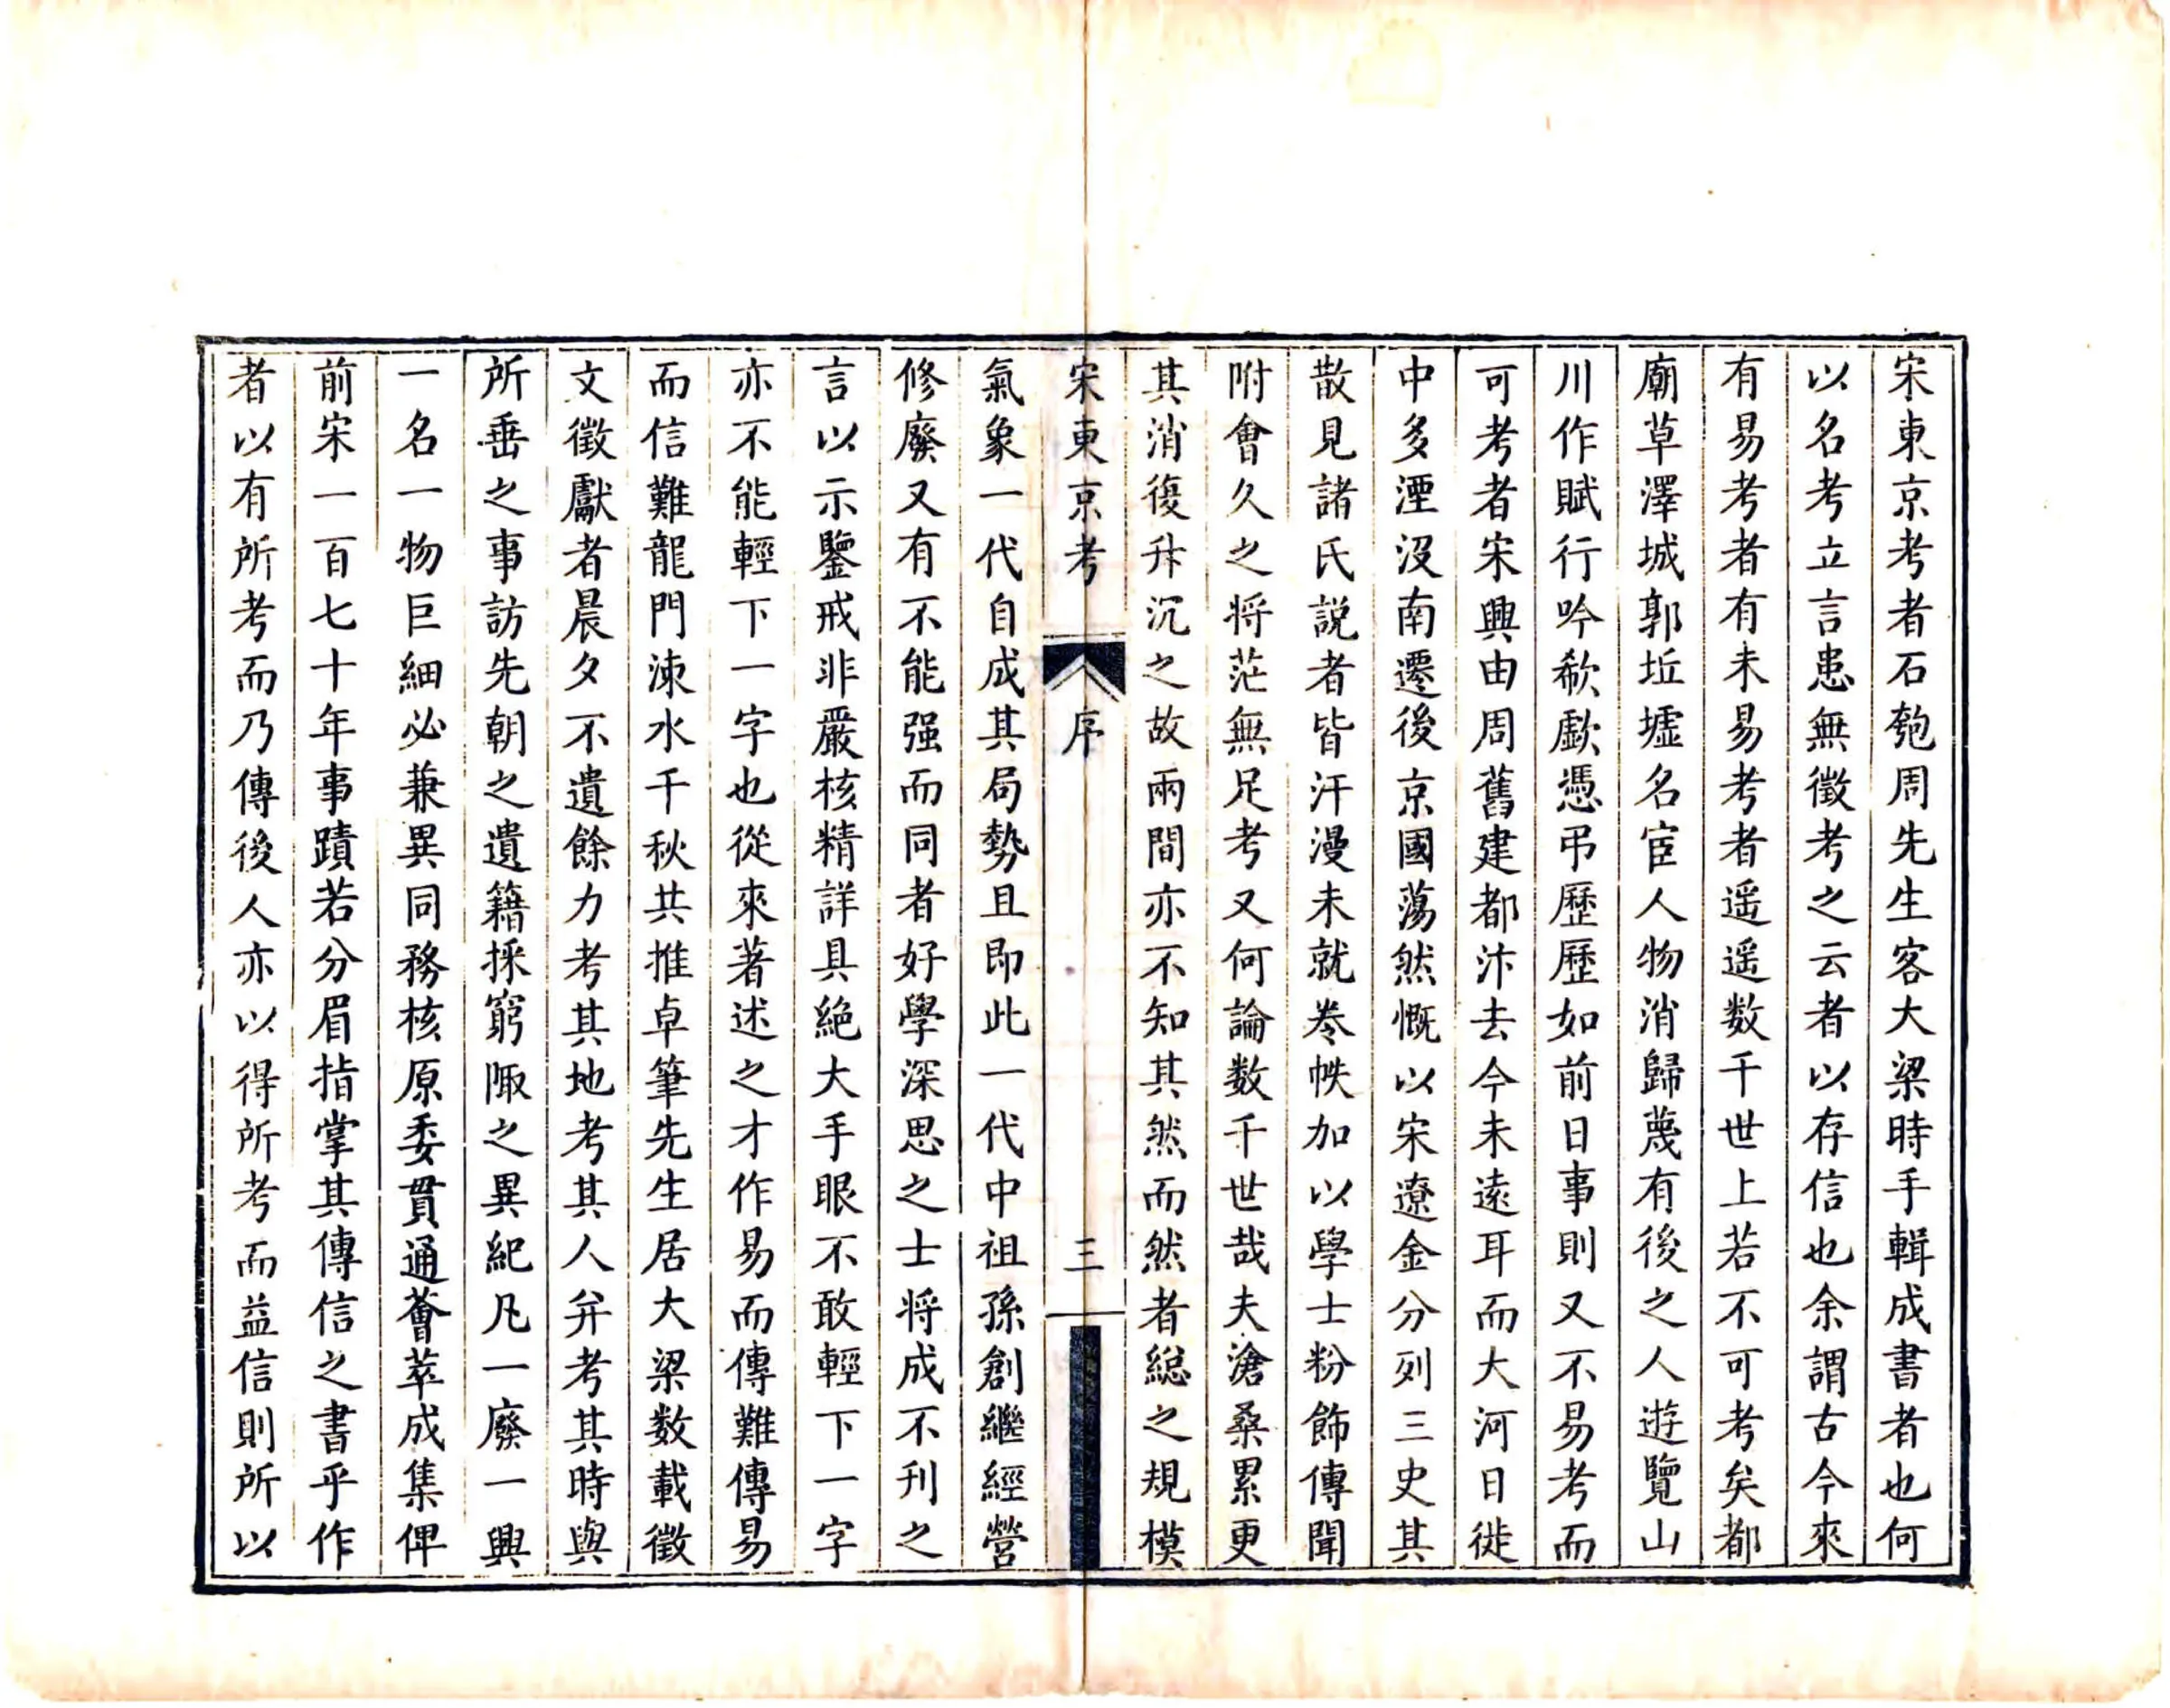 宋東京考者石匏周先生客大梁時手輯成書者也何
以名考立言患無徵考之云者以存信也余謂古今來
有易考者有未易考者遥遥数千世上若不可考矣都
廟草澤城郭坵墟名宦人物消歸蔑有後之人遊覽山
川作賦行吟欷歔憑弔歷歷如前日事則又不易考而
可考者宋興由周舊建都汴去今未遠耳而大河日徙
中多湮沒南遷後京國蕩然慨以宋遼金分列三史其
散見諸氏説者皆汗漫未就卷帙加以學士粉飾傳聞
附會久之将茫無足考又何論数千世哉夫滄桑累更
其消復升沉之故兩間亦不知其然而然者総之規模
宋東京考 序 三
氣象一代自成其局勢且即此一代中祖孫創繼經營
修廢又有不能强而同者好學深思之士将成不刊之
言以示鑒戒非嚴核精詳具絶大手眼不敢輕下一字
亦不能輕下一字也從來著述之才作易而傳難傳易
而信難龍門涑水千秋共推卓筆先生居大梁数載徵
文徵獻者晨夕不遺餘力考其地考其人弁考其時與
所垂之事訪先朝之遺籍採窮陬之異紀凡一廢一興
一名一物巨細必兼異同務核原委貫通薈萃成集俾
前宋一百七十年事蹟若分眉指掌其傳信之書乎作
者以有所考而乃傳後人亦以得所考而益信則所以